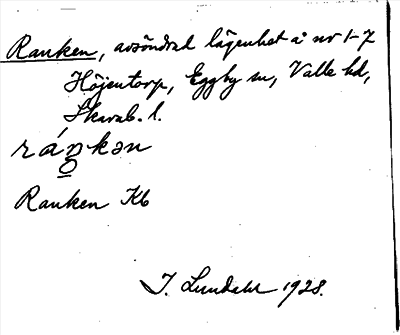 Ranken, avsöndrad lägenhet å nr 1-7
Höjentorp, Eggby sn, Valle hd,
Skarab. l.
ráŋkən
Ranken Kb
I. Lundahl 1928.